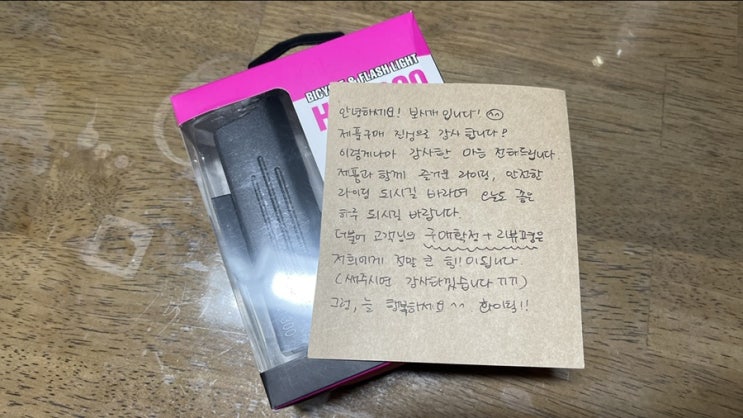 BICYCLE & FLASH LIGHT
안녕하세요! 입니다!
제품구매 진심으로 감사합니다
이렇게나마 감사한 마음 전해드립니다
제품과 함께 즐거운 라이딩, 안전한
라이딩 되시길 바라며 오늘도 좋은
하루 되시길 바랍니다.
더불어 고객님의 구매확정 + 리뷰평은
저희에게 정말 큰 힘!! 이됩니다
(써주시면 감사하겠습니다 ㄲㄲ)
그럼, 늘 행복하세요 ^^ 화이팅!!